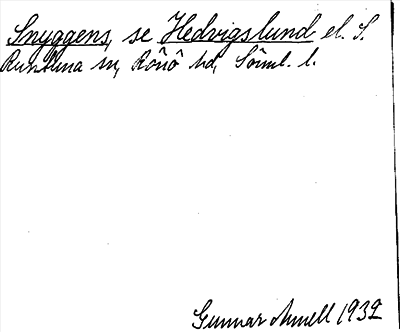 Snyggens, se Hedvigslund el. S.
Runtuna sn, Rönö hd, Söml. l.
Gunnar Amell 1932